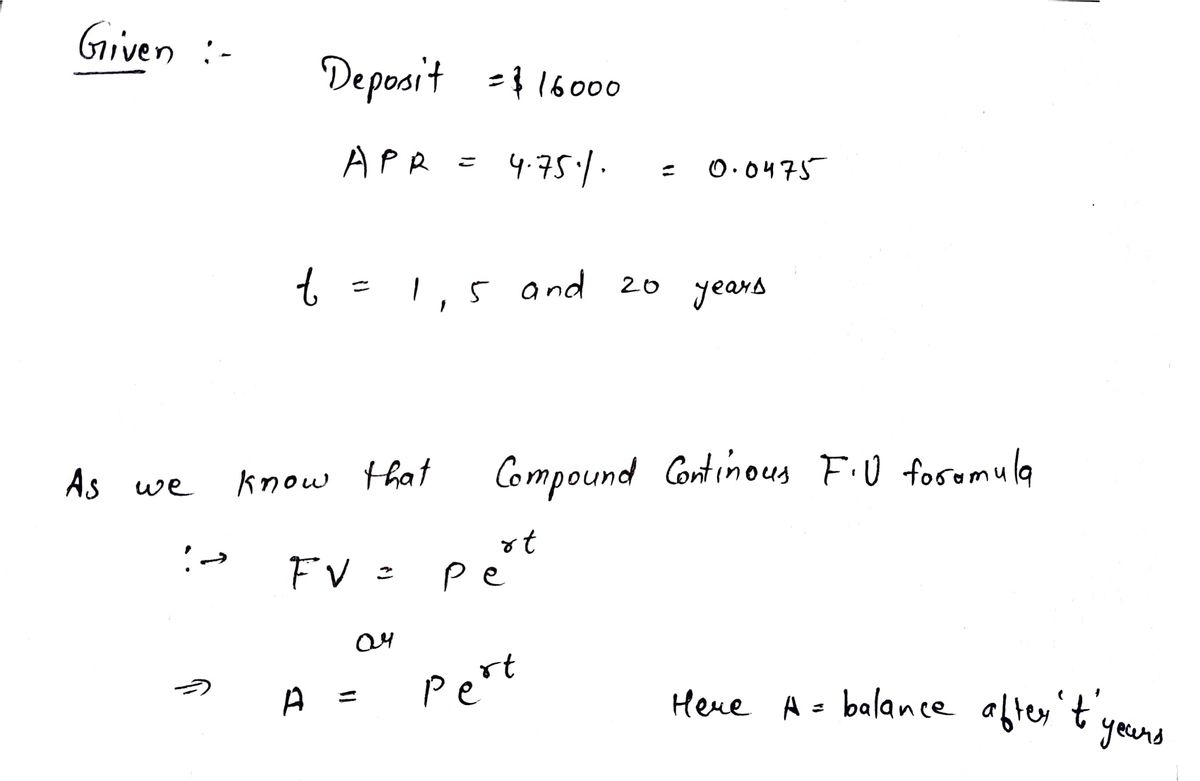 Given :-
Deposit = $ 16000
APR = 4.75% = 0.0475
t = 1, 5 and 20 years
As we know that Compound Continous F.V formula
:→ FV = Pe^rt
or
⇒ A = Pe^rt Here A = balance after 't' years